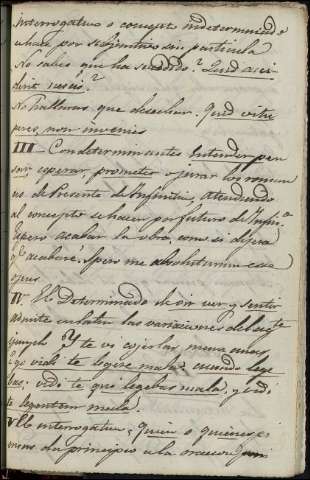 interrogativo o concepto indeterminado
se hace por subjuntivo sin particula
No sabes que ha sucedido? Quid acci
derit nescis?
No hallaras que desechar. Quod vitu
peres, non invenies
III Con determinantes Entender pen
sar esperar, prometer o jurar los roman
de Presente de Infinitivo, atendiendo
al concepto se hacen por futuro de Infin.o
Espero acabar la obra, como si dijera
q.e acabaré. Spero me absoluturum esse
opus
IV. El Determinado de oir ver y sentir
admite en latin las variaciones del sig.te
ejemplo Yo te vi cojer las manzanas
Ego vidi te legere mala; cuando lege
bas; vidi te qui legebas mala, y vidi
te legentem mala.
V El interrogativo; Quien o quienes, se
pone al principio de la oracion